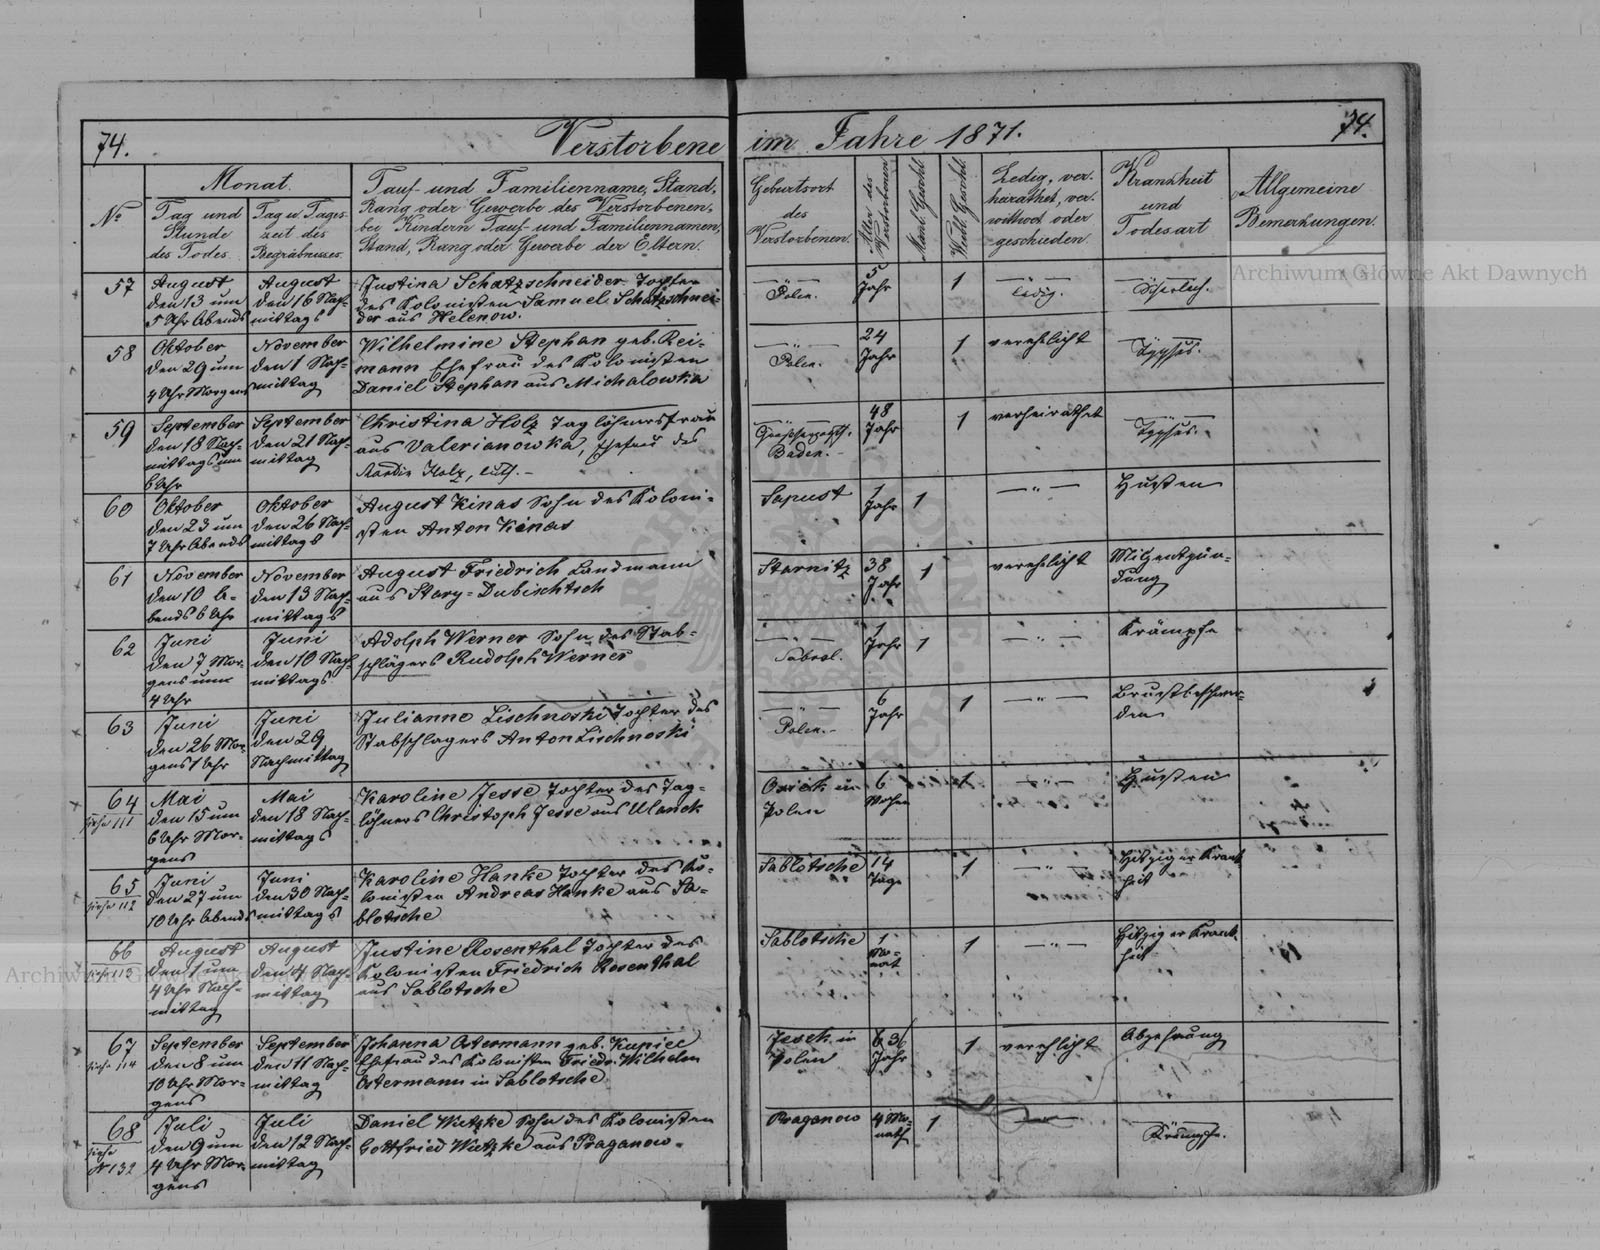 74.
Verstorbene im Jahre 1871.
74.
No
Monat.
Tag und
Stunde
des Todes.
Tag u. Tages-
zeit des
Begräbnisses.
Tauf- und Familienname, Stand,
Rang oder Gewerbe des Verstorbenen,
bei Kindern Tauf- und Familiennamen,
Stand, Rang oder Gewerbe der Eltern.
Geburtsort
des
Verstorbenen.
Alter des
Verstorbenen
Männl. Geschl.
Weibl. Geschl.
Ledig, ver-
heirathet, ver-
wittwet oder
geschieden.
Krankheit
und
Todesart
Allgemeine
Bemerkungen.
57
August
den 13 um
5 Uhr Abends
August
den 16 Nach-
mittags
Justina Schatzschneider Tochter
des Kolonisten Samuel Schatzschnei-
der aus Helenow.
Polen.
5
Jahr
1
ledig.
Scharlach.
58
Oktober
den 29 um
4 Uhr Morgens
November
den 1 Nach-
mittag
Wilhelmine Stephan geb. Rei-
mann Ehefrau des Kolonisten
Daniel Stephan aus Michalowka
Polen.
24
Jahr
1
verehlicht
Typhus.
59
September
den 18 Nach-
mittags um
6 Uhr
September
den 21 Nach-
mittag
Christina Holz Taglöhnersfrau
aus Valerianowka, Ehefrau des
Holz,
Baden.
48
Jahr
1
verheirathet
Typhus.
60
Oktober
den 23 um
7 Uhr Abends
Oktober
den 26 Nach-
mittags
August Kinas Sohn des Koloni-
sten Anton Kinas
Sapust
1
Jahr
1
— " —
Husten
61
November
den 10 A-
bends 6 Uhr
November
den 13 Nach-
mittags
August Friedrich Landmann
aus Stary-Dubischtsch
Starnitz
38
Jahr
1
verehlicht
Milzentzün-
dung
62
Juni
den 7 Mor-
gens um
4 Uhr
Juni
den 10 Nach-
mittags
Adolph Werner Sohn des Stab-
schlägers Rudolph Werner
1
Jahr
1
— " —
Krämpfe
63
Juni
den 26 Mor-
gens 1 Uhr
Juni
den 29
Nachmittag
Julianne Lischnoski Tochter des
Stabschlagers Anton Lischnoski
Polen.
6
Jahr
1
— " —
Brustbeschwer-
den
64
siehe 111
Mai
den 15 um
6 Uhr Mor-
gens
Mai
den 18 Nach-
mittags
Karoline Jesse Tochter des Tag-
löhners Christoph Jesse aus Ulanek
in
Polen
6
Wochen
1
— " —
Husten
65
siehe 112
Juni
den 27 um
10 Uhr Abends
Juni
den 30 Nach-
mittags
Karoline Hanke Tochter des Ko-
lonisten Andreas Hanke aus Sa-
blotsche
Sablotsche
14
Tage
1
— " —
Hitziger Krank-
heit
66
siehe 113
August
den 1 um
4 Uhr Nach-
mittag
August
den 4 Nach-
mittag
Justine Rosenthal Tochter des
Kolonisten Friedrich Rosenthal
aus Sablotsche
Sablotsche
1
Mo-
nat
1
— " —
Hitziger Krank-
heit
67
siehe 114
September
den 8 um
10 Uhr Mor-
gens
September
den 11 Nach-
mittag
Johanna Ostermann geb. Kupiec
Ehefrau des Kolonisten Friedr. Wilhelm
Ostermann in Sablotsche
in
Polen
Jahr
1
verehlicht
Abzehrung
68
siehe
No 132
Juli
den 9 um
4 Uhr Mor-
gens
Juli
den 12 Nach-
mittag
Daniel Wutzke Sohn des Kolonisten
Gottfried Wutzke aus Praganow.
Praganow
4 Mo-
nath
1
Krämpfe.
Archiwum Główne Akt Dawnych